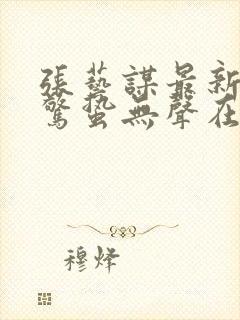 張藝謀最新
驚蟄無聲在
穆烽